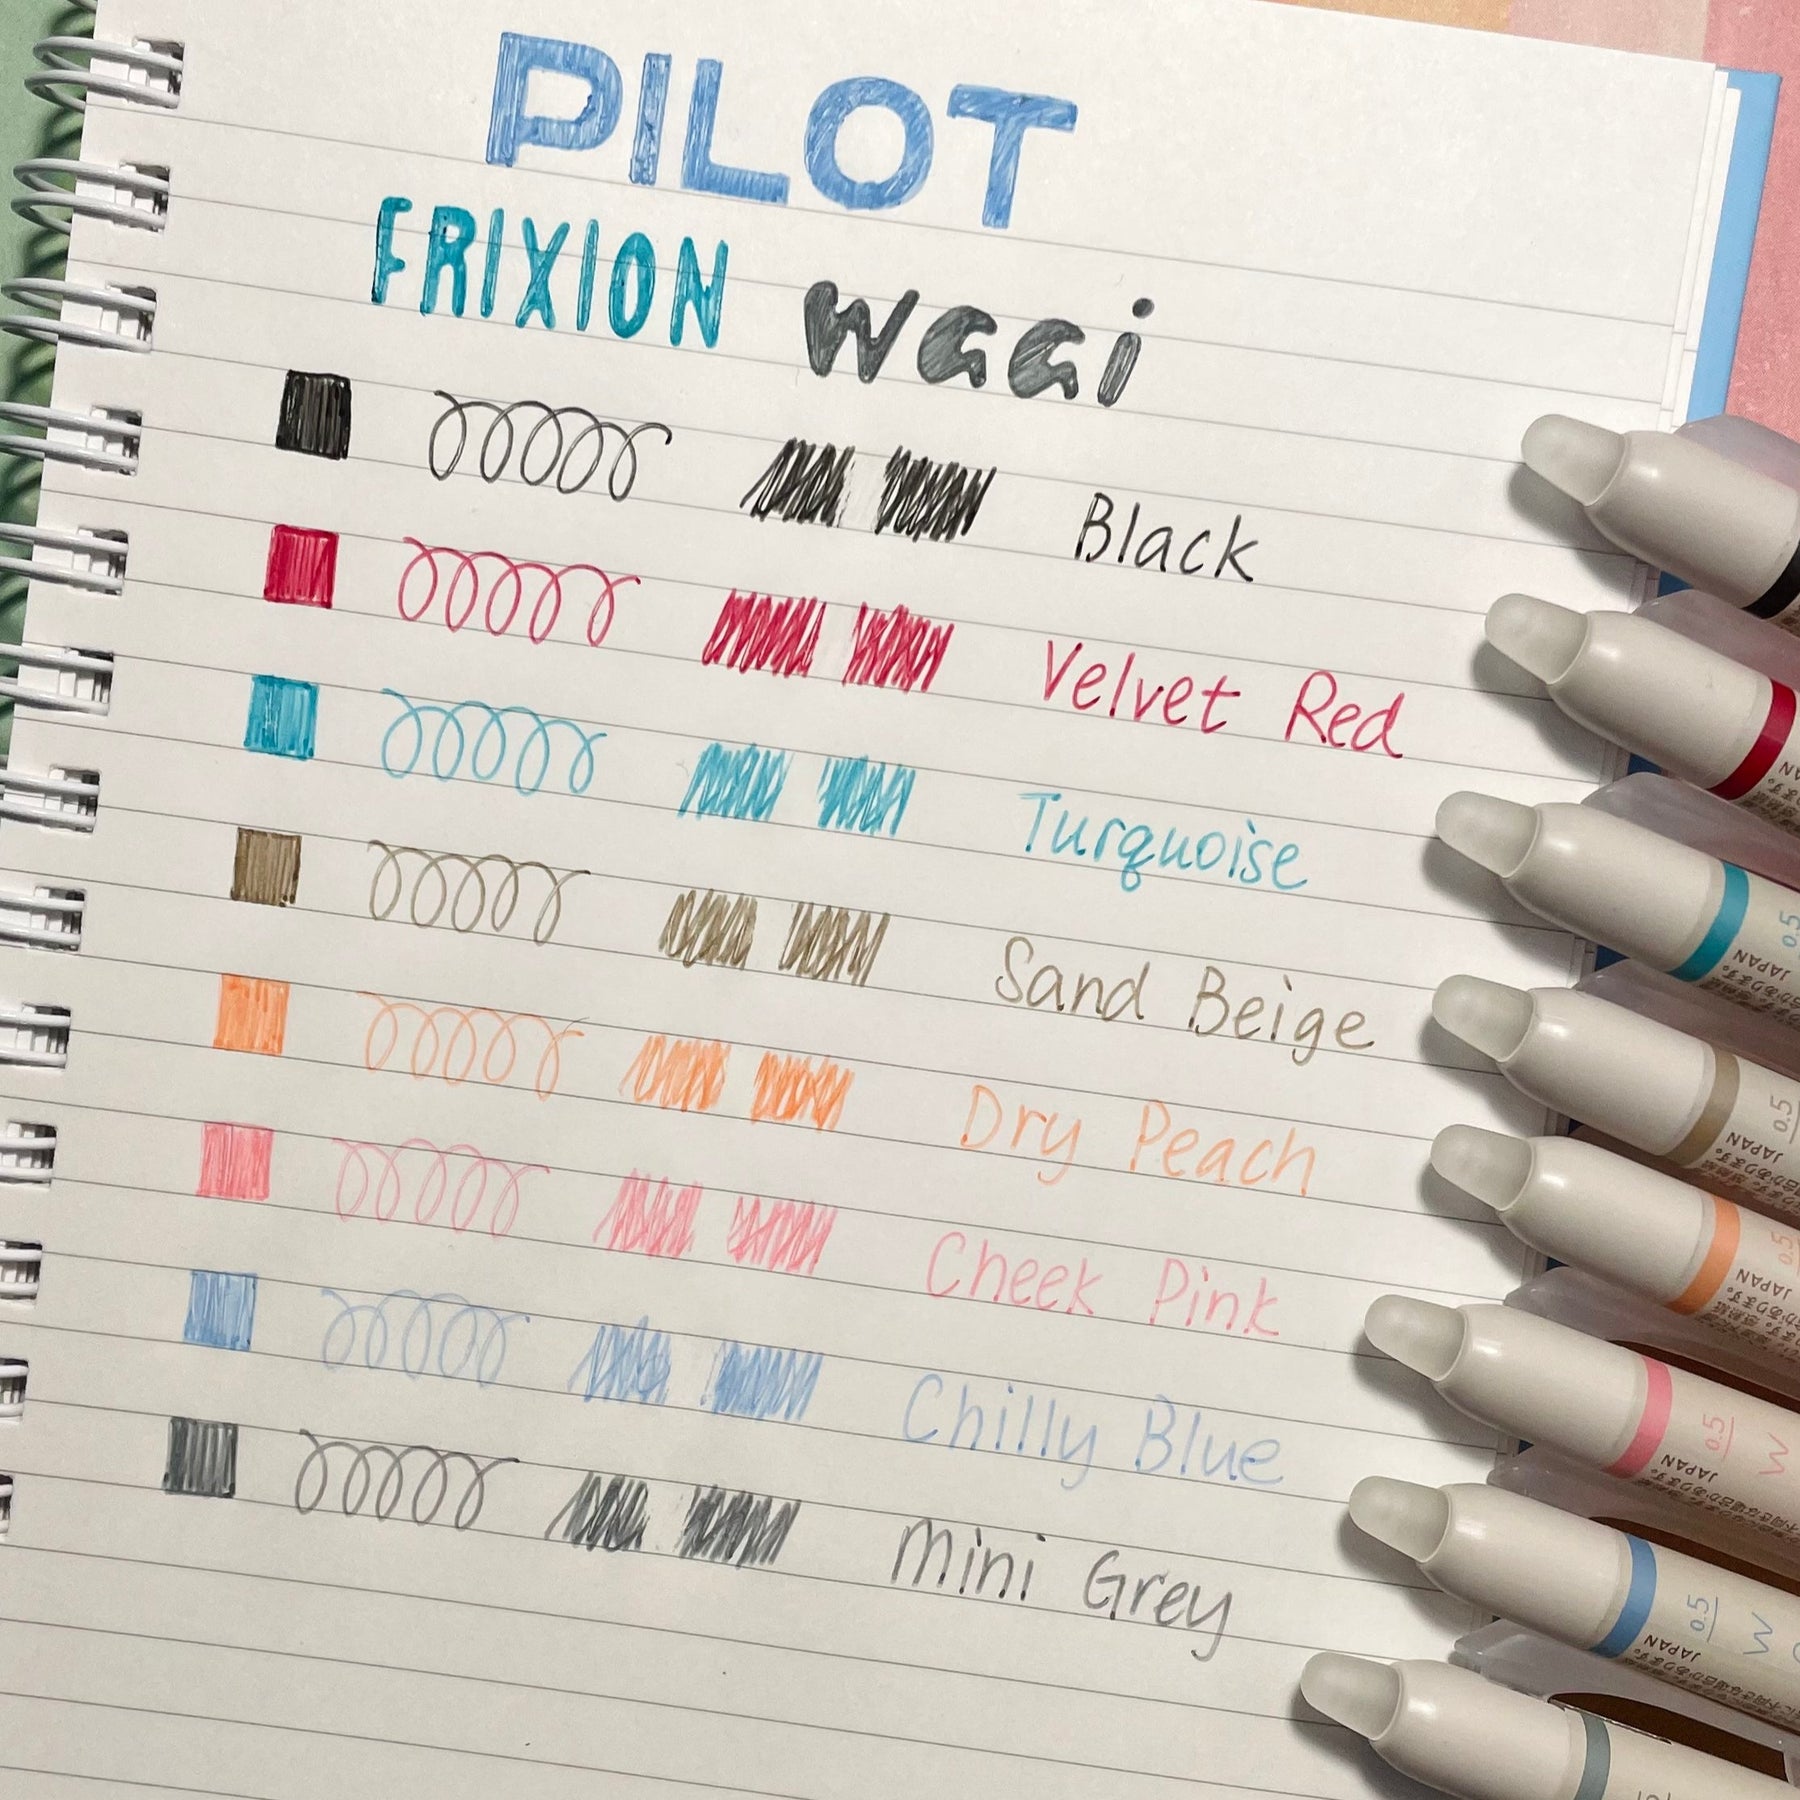 PILOT
FRIXION waai
Black
Velvet Red
Turquoise
Sand Beige
Dry Peach
Cheek Pink
Chilly Blue
Mini Grey
0.5
JAPAN
0.5
JAPAN
0.5
JAPAN
0.5
JAPAN
0.5
JAPAN